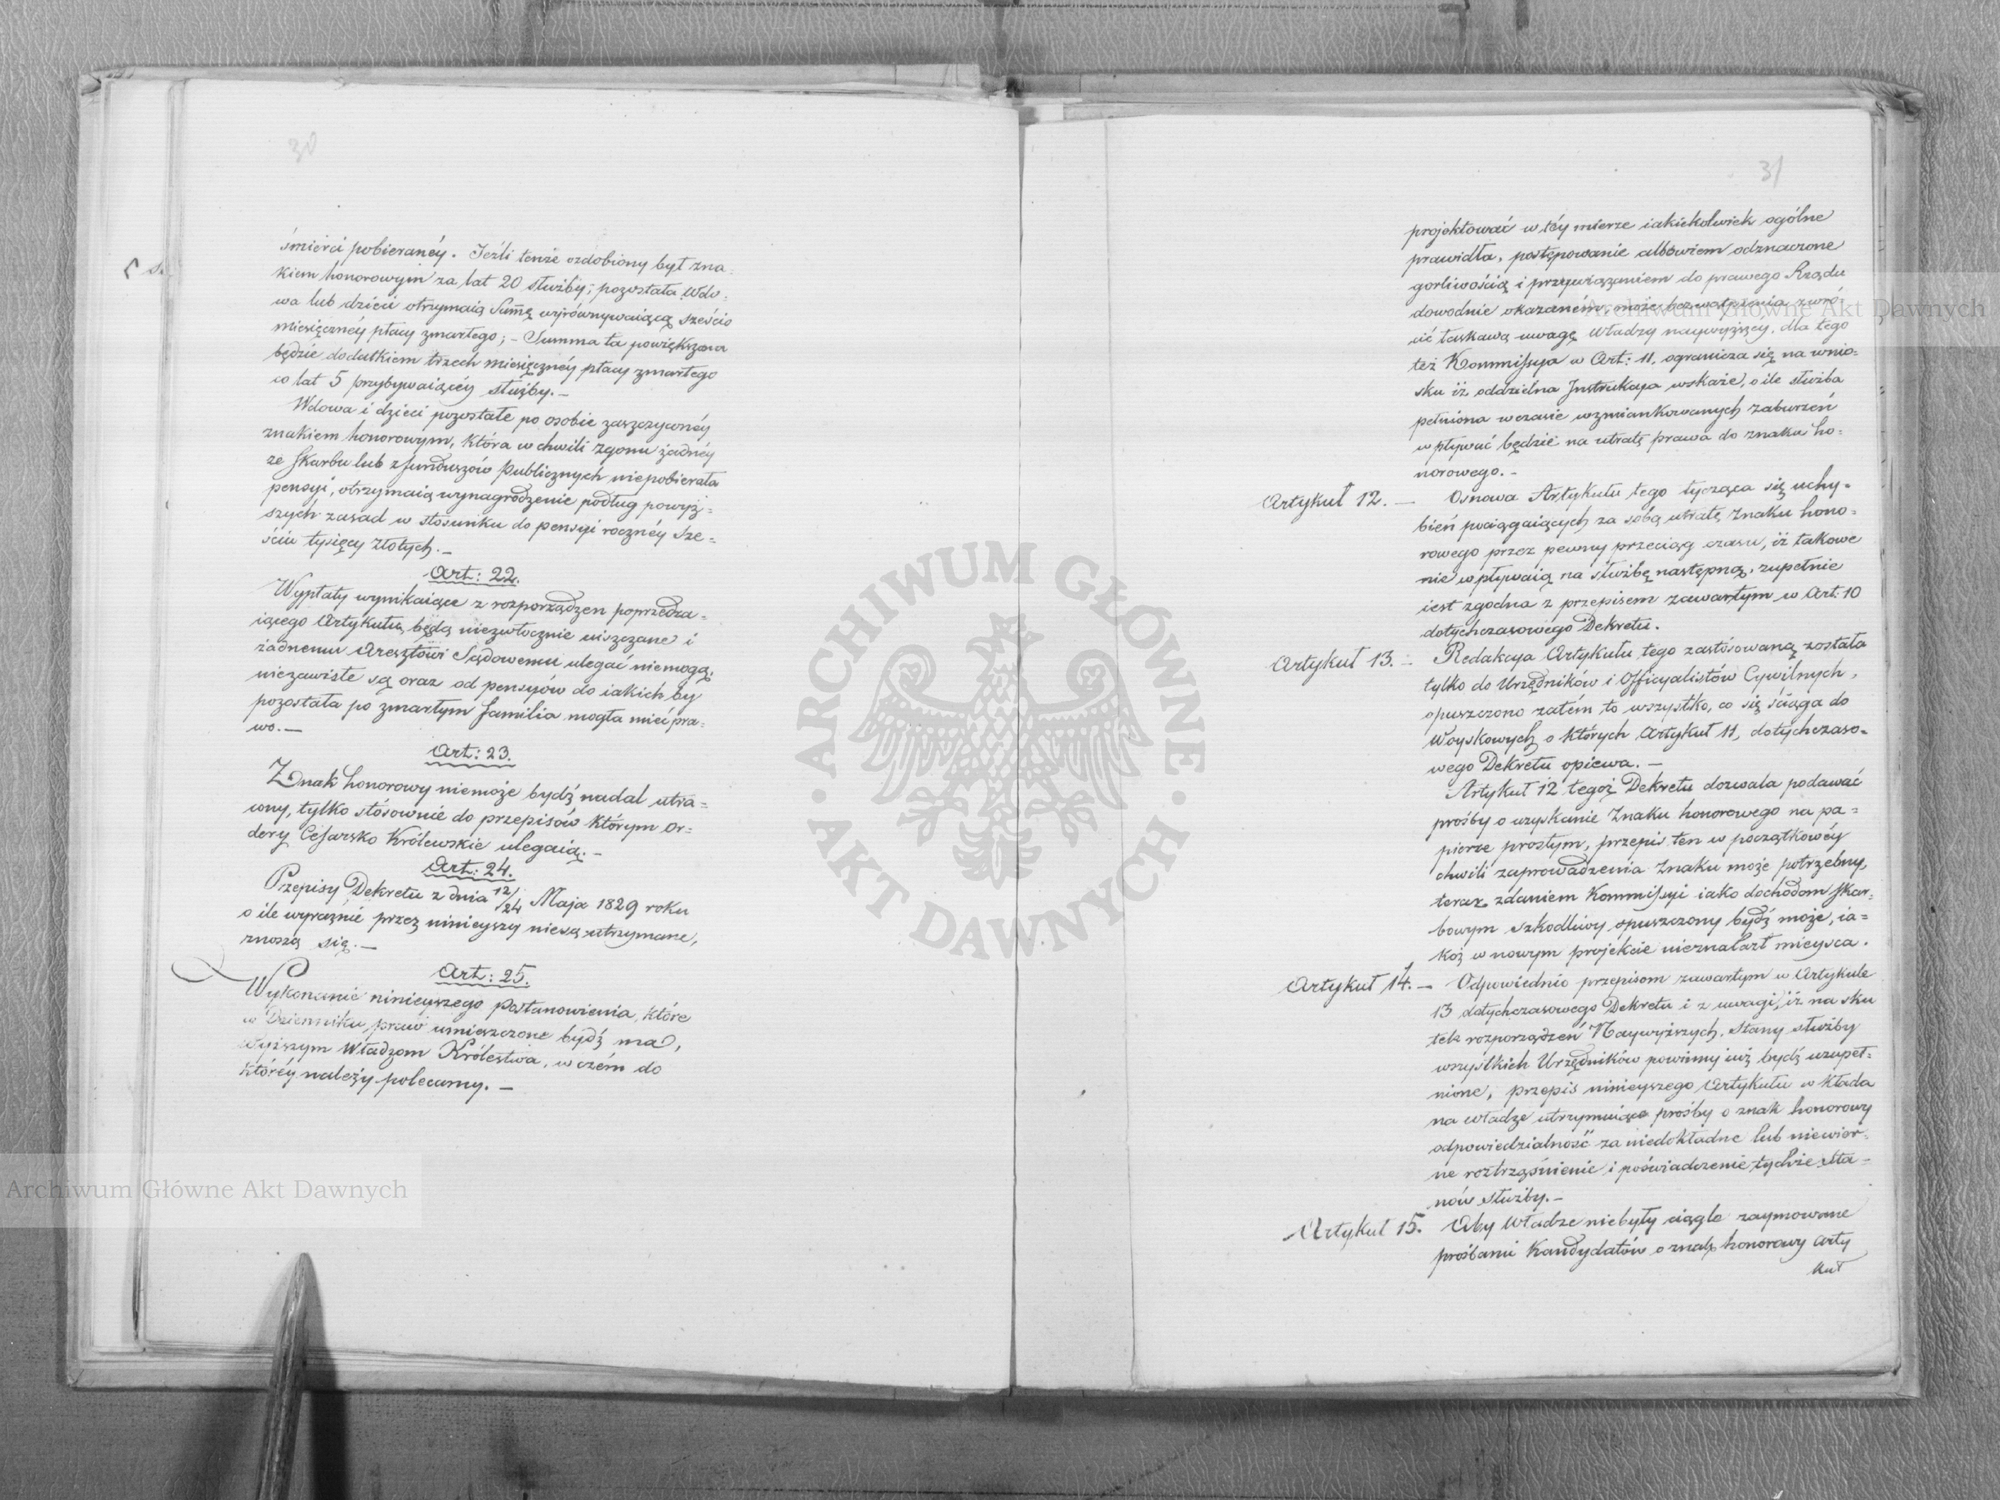 30
śmierci pobieranéy. Jeżli tenże ozdobiony był zna-
kiem honorowym za lat 20 służby; pozostała Wdo-
wa lub dzieci otrzymaią Summę wyrównywaiącą sześcio
miesięcznéy płacy zmarłego; - Summa ta powiększona
będzie dodatkiem trzech miesięcznéy płacy zmarłego
co lat 5 przybywaiącéy służby. -
Wdowa i dzieci pozostałe po osobie zaszczyconéy
znakiem honorowym, która w chwili zgonu żadnéy
ze Skarbu lub z funduszów Publicznych niepobierała
pensyi, otrzymaią wynagrodzenie podług powyż-
szych zasad w stosunku do pensyi rocznéy sze-
ściu tysięcy złotych. -
Art: 22.
Wypłaty wynikaiące z rozporządzeń poprzedza-
iącego Artykułu, będą niezwłocznie uiszczane i
żadnemu Aresztowi Sądowemu ulegać niemogą;
niezawisłe są oraz od pensyów do iakich by
pozostała po zmarłym familia mogła mieć pra-
wo. -
Art: 23.
Znak honorowy niemoże bydź nadal utra-
cony, tylko stósownie do przepisów którym Or-
dery Cesarsko Królewskie ulegaią. -
Art: 24.
Przepisy Dekretu z dnia 12/24 Maja 1829 roku
o ile wyraźnie przez ninieyszy niesą utrzymane,
znoszą się. -
Art: 25.
Wykonanie ninieyszego Postanowienia, które
w Dzienniku praw umieszczone bydź ma,
Wyższym Władzom Królestwa, w czém do
któréy należy polecamy. -
31
projektować w téy mierze iakiekolwiek ogólne
prawidła, postępowanie albowiem odznaczone
gorliwością i przywiązaniem do prawego Rządu
dowodnie okazaném, może bezwątpienia zwró-
cić łaskawą uwagę Władzy naywyższéy, dla tego
też Kommissya w Art: 11, ogranicza się na wnio-
sku iż oddzielna Instrukcya wskaże, o ile służba
pełniona w czasie wzmiankowanych zaburzeń
wpływać będzie na utratę prawa do znaku ho-
norowego. -
Artykuł 12. - Osnowa Artykułu tego tycząca się uchy-
bień pociągaiących za sobą utratę Znaku hono-
rowego przez pewny przeciąg czasu, iż takowe
nie wpływaią na służbę następną, zupełnie
iest zgodna z przepisem zawartym w Art: 10
dotychczasowego Dekretu.
Artykuł 13. - Redakcya Artykułu tego zastósowaną została
tylko do Urzędników i Officyalistów Cywilnych,
opuszczono zatém to wszystko, co się ściąga do
Woyskowych o których Artykuł 11, dotychczaso-
wego Dekretu opiewa. -
Artykuł 12 tegoż Dekretu dozwala podawać
prośby o uzyskanie Znaku honorowego na pa-
pierze prostym, przepis ten w początkowéy
chwili zaprowadzenia Znaku może potrzebny,
teraz zdaniem Kommissyi iako dochodom Skar-
bowym szkodliwy opuszczony bydź może, ia-
koż w nowym projekcie nieznalazł mieysca.
Artykuł 14. - Odpowiednio przepisom zawartym w Artykule
13 dotychczasowego Dekretu i z uwagi, iż na sku
tek rozporządzeń Naywyższych, Stany służby
wszystkich Urzędników powinny iuż bydź uzupeł-
nione, przepis ninieyszego Artykułu wkłada
na władze utrzymuiące prośby o znak honorowy
odpowiedzialność za niedokładne lub niewier-
ne roztrząśnienie i poświadczenie tychże Sta-
nów służby. -
Artykuł 15. Aby Władze niebyły ciągle zaymowane
prośbami Kandydatów o znak honorowy Arty
kuł
Archiwum Główne Akt Dawnych
Archiwum Główne Akt Dawnych
ARCHIWUM GŁÓWNE · AKT DAWNYCH ·